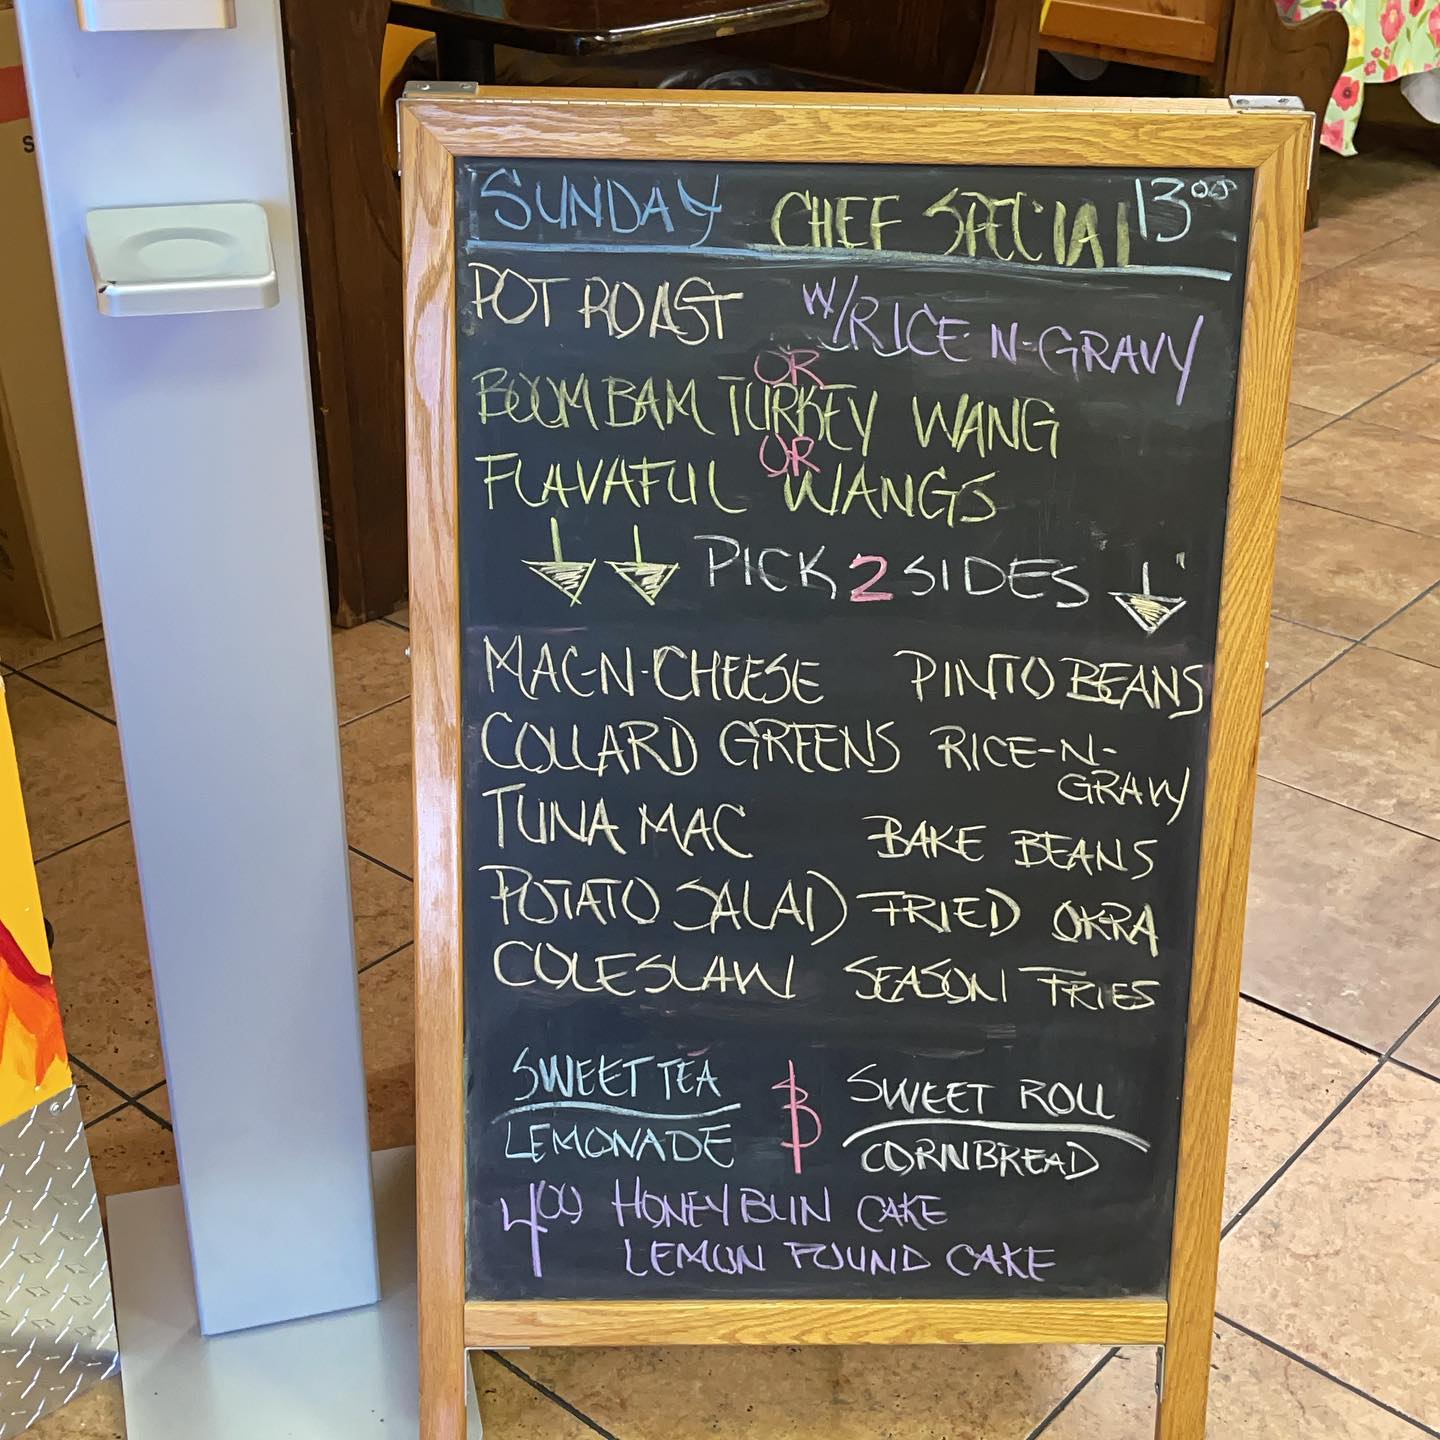 SUNDAY CHEF SPECIAL 13.00
POT ROAST W/RICE-N-GRAVY
OR
BOOM BAM TURKEY WANG
OR
FLAVAFUL WANGS
PICK 2 SIDES
MAC-N-CHEESE PINTO BEANS
COLLARD GREENS RICE-N-
GRAVY
TUNA MAC BAKE BEANS
POTATO SALAD FRIED OKRA
COLESLAW SEASON FRIES
SWEET TEA $ SWEET ROLL
LEMONADE CORNBREAD
4.00 HONEYBUN CAKE
LEMON POUND CAKE